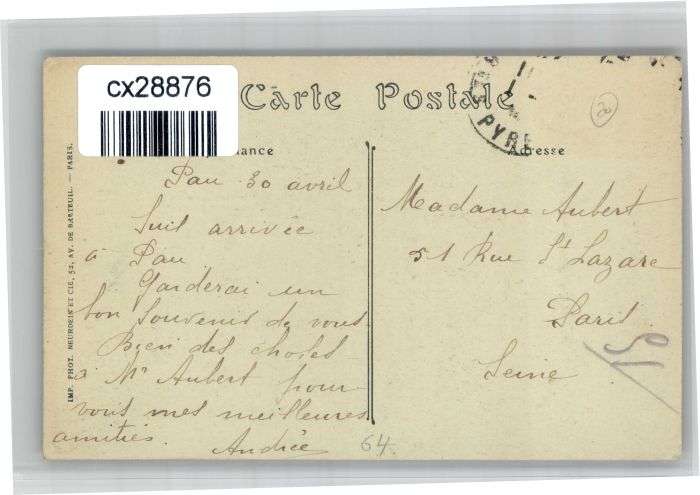 cx28876
Carte Postale
PYRE
20
ance
Adresse
Pau 30 avril
Suis arrivée
à Pau
Garderai un
bon souvenir de vous
Bien des choses
à Mr Aubert pour
vous mes meilleures
amitiés.
Andrée
64.
Madame Aubert
51 Rue St Lazare
Paris
Seine
IMP. PHOT. NEURDEIN ET CIE, 52, AV. DE BRETEUIL. — PARIS.